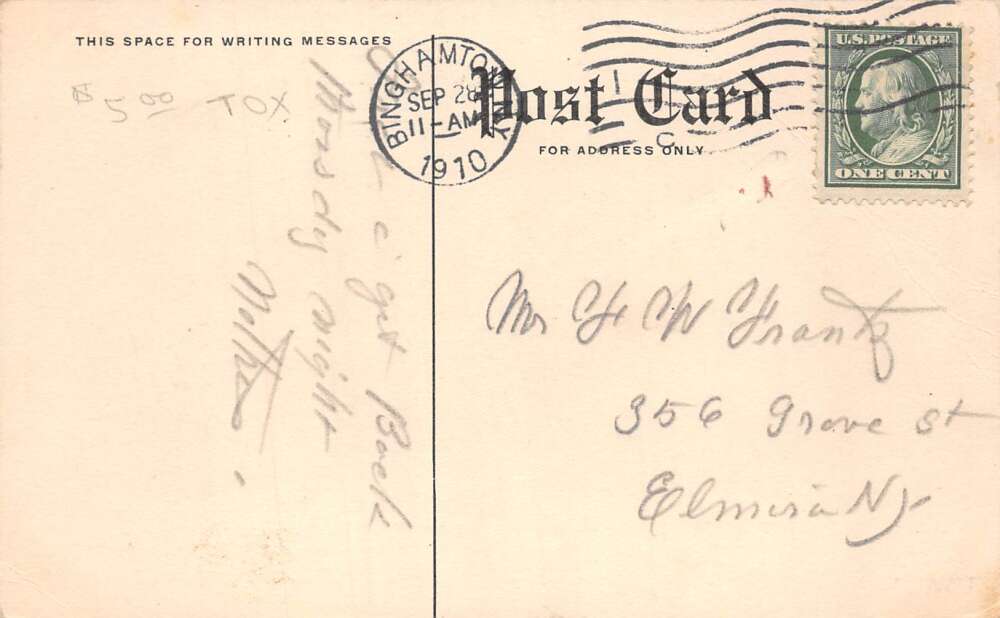 THIS SPACE FOR WRITING MESSAGES
$5.00 TOX
get Back
Monsdy night
Mother.
BINGHAMTON N.Y.
SEP 28
11-AM
1910
1
C
Post Card
FOR ADDRESS ONLY
U.S. POSTAGE
ONE CENT
Mr F W Frantz
356 Grove st
Elmira NY